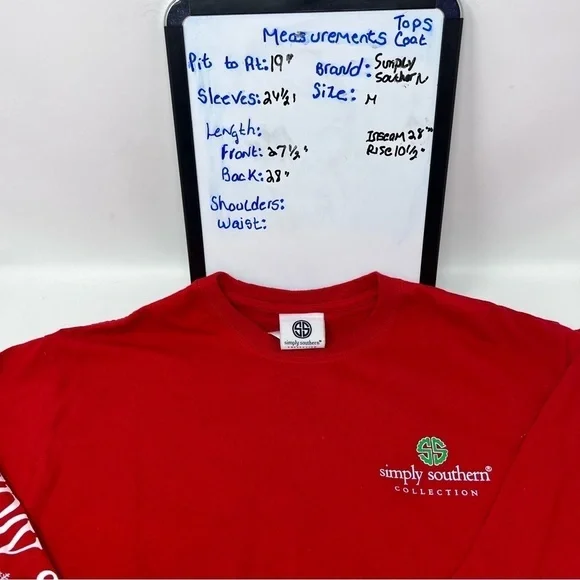 Tops
Measurements Coat
Pit to Pit: 19"
Brand: Simply Southern
Sleeves: 24½"
Size: M
Length:
Inseam 28"
Front: 27½"
Rise 10½"
Back: 28"
Shoulders:
Waist:
SS
simply southern®
COLLECTION
SS
simply southern®
COLLECTION